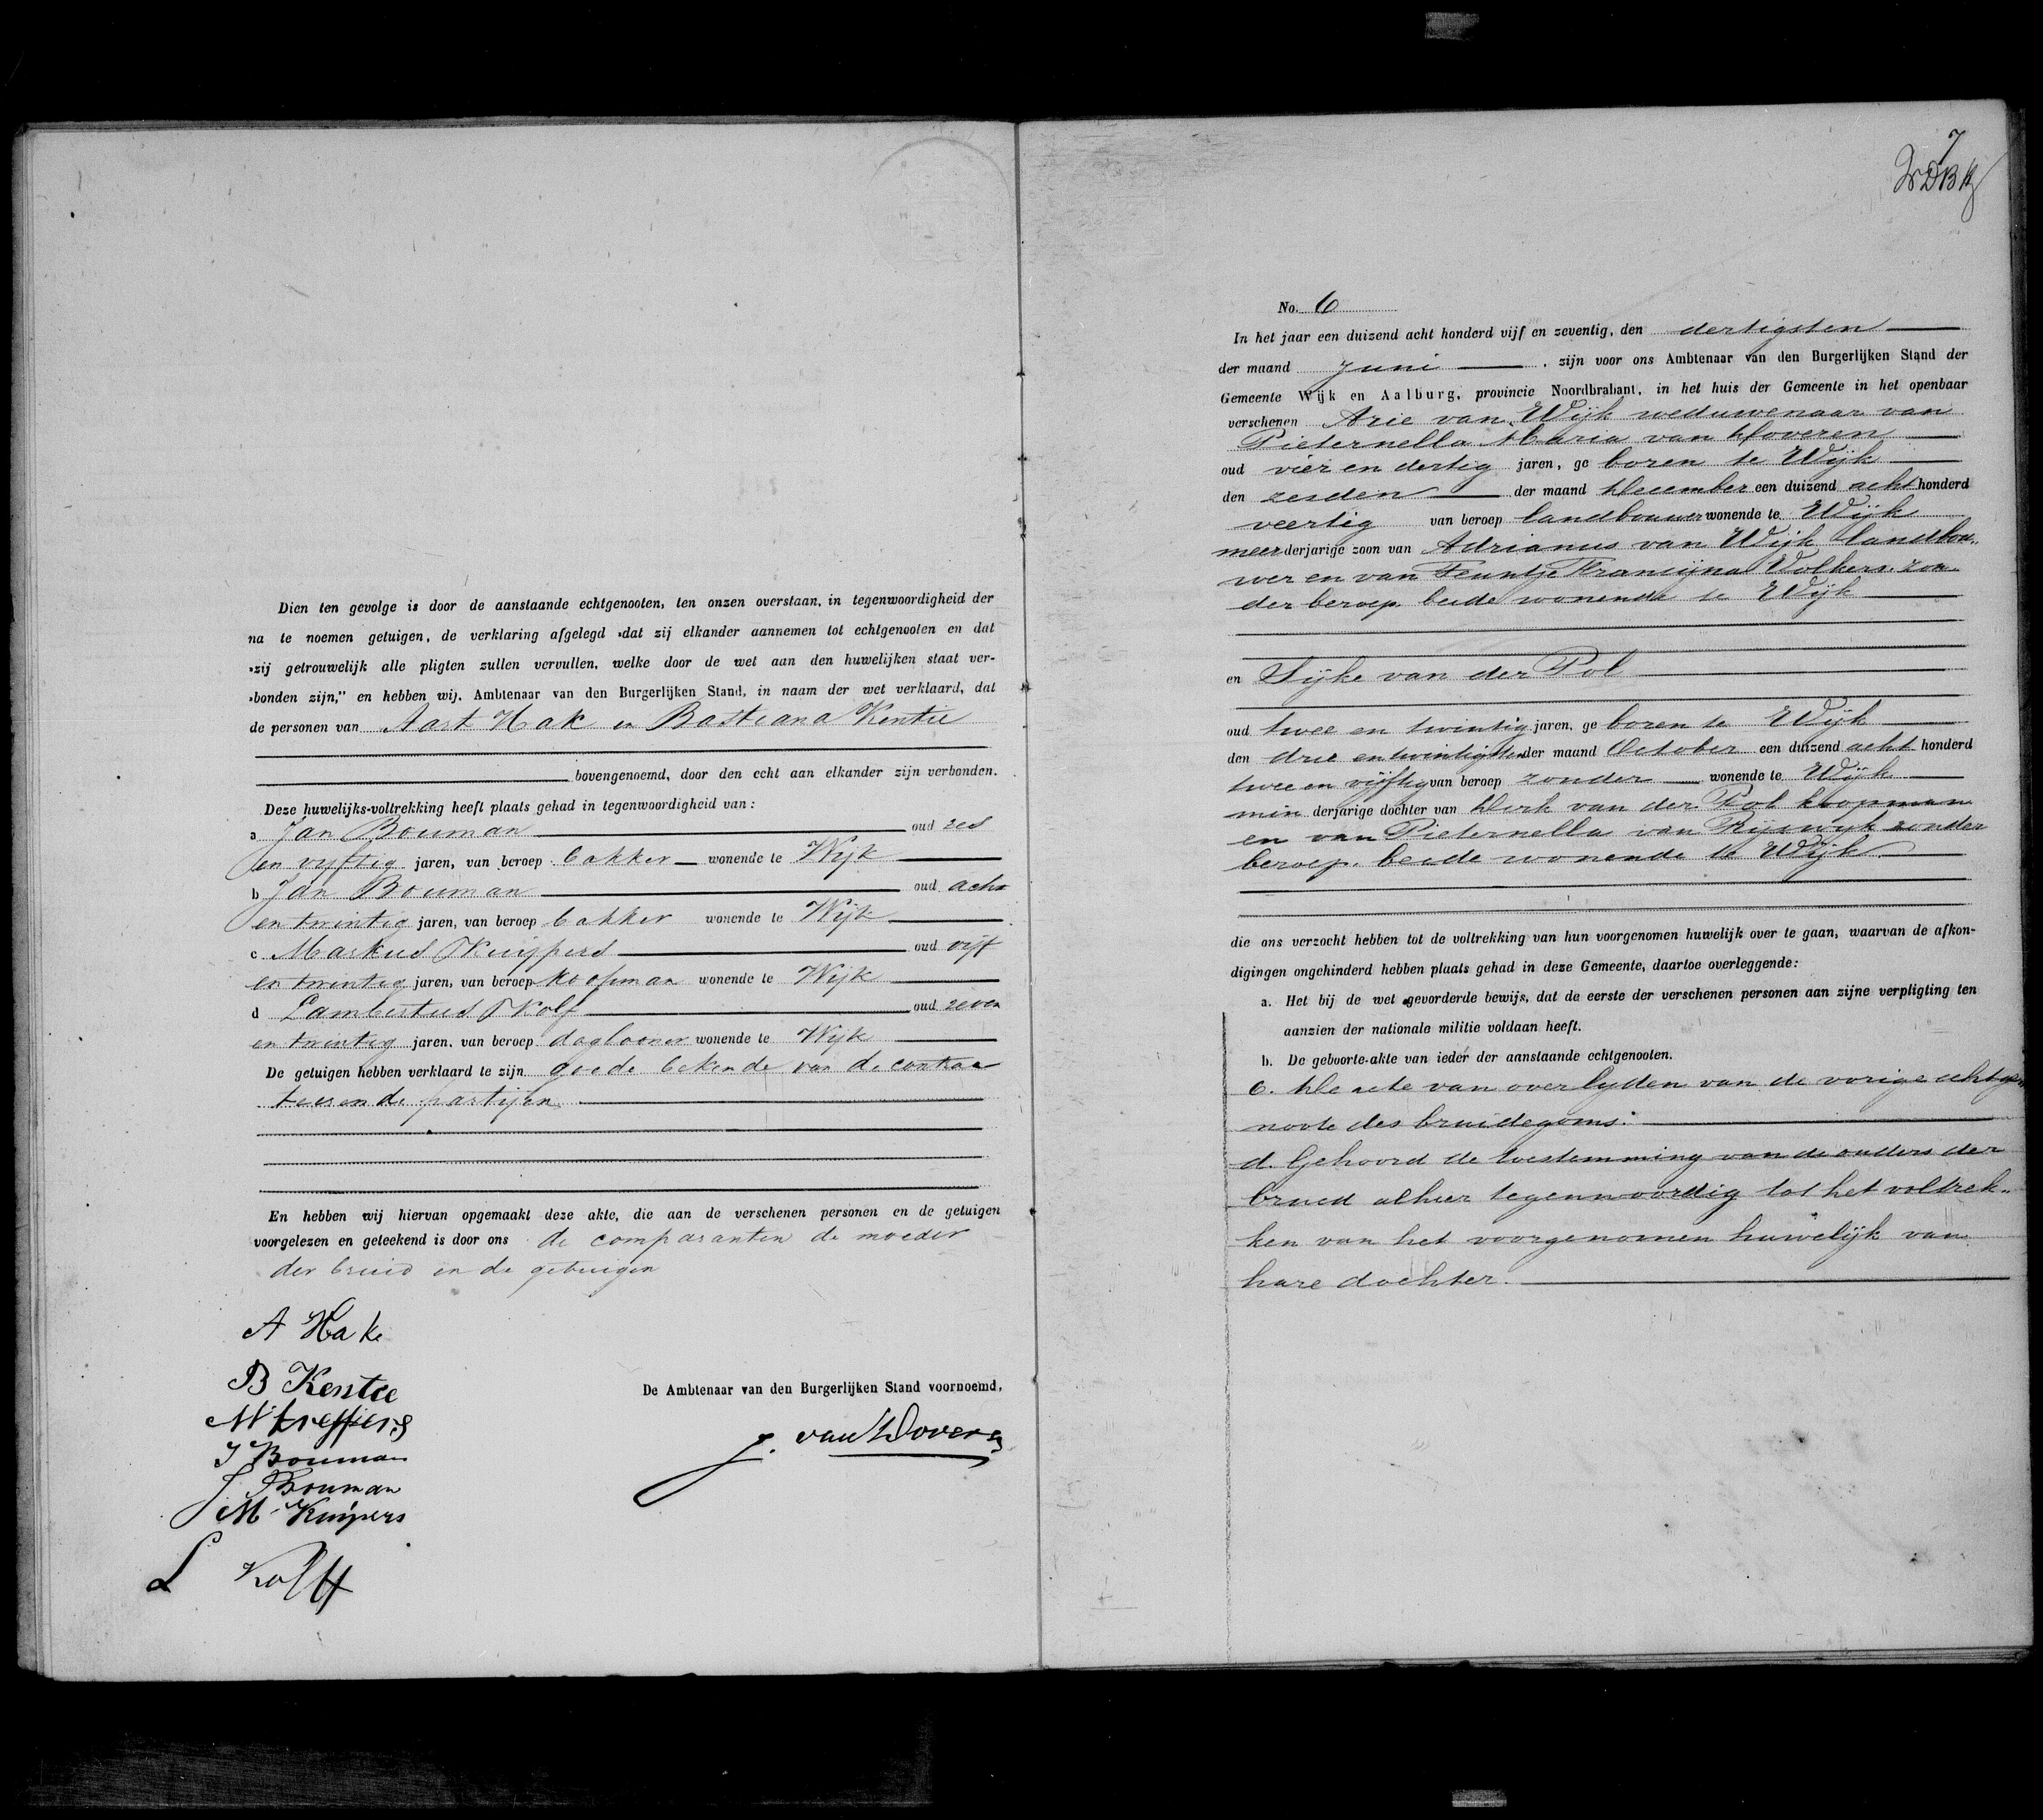 Dien ten gevolge is door de aanstaande echtgenooten, ten onzen overstaan, in tegenwoordigheid der
na te noemen getuigen, de verklaring afgelegd »dat zij elkander aannemen tot echtgenooten en dat
»zij getrouwelijk alle pligten zullen vervullen, welke door de wet aan den huwelijken staat ver-
»bonden zijn,” en hebben wij, Ambtenaar van den Burgerlijken Stand, in naam der wet verklaard, dat
de personen van Aart Hak en Bastiana Kentie
bovengenoemd, door den echt aan elkander zijn verbonden.
Deze huwelijks-voltrekking heeft plaats gehad in tegenwoordigheid van:
a Jan Bouman oud zes
en vyftig jaren, van beroep bakker wonende te Wijk
b Jan Bouman oud acht
en twintig jaren, van beroep bakker wonende te Wijk
c Markus Kuijpers oud vijf
en twintig jaren, van beroep koopman wonende te Wijk
d Lambertus Kolf oud zeven
en twintig jaren, van beroep daglooner wonende te Wijk
De getuigen hebben verklaard te zijn goede bekende van de contrac
teerende partijen
En hebben wij hiervan opgemaakt deze akte, die aan de verschenen personen en de getuigen
voorgelezen en geteekend is door ons de comparanten de moeder
der bruid en de getuigen
A Hak
B Kentie
J Bouman
J Bouman
M Kuijpers
L Kolff
De Ambtenaar van den Burgerlijken Stand voornoemd,
J. van
7
No. 6
In het jaar een duizend acht honderd vijf en zeventig, den dertigsten
der maand Juni, zijn voor ons Ambtenaar van den Burgerlijken Stand der
Gemeente Wijk en Aalburg, provincie Noordbrabant, in het huis der Gemeente in het openbaar
verschenen Arie van Wijk weduwenaar van
Pieternella Maria van Hoveren
oud vier en dertig jaren, ge boren te Wijk
den zesden der maand December een duizend acht honderd
veertig van beroep landbouwer wonende te Wijk
meerderjarige zoon van Adrianus van Wijk landbou„
wer en van Teuntje Francijna Volkers zon
der beroep beide wonende te Wijk
en Sijke van der Pol
oud twee en twintig jaren, ge boren te Wijk
den drie en twintigsten der maand October een duizend acht honderd
twee en vijftig van beroep zonder wonende te Wijk
min derjarige dochter van Derk van der Pol koopman
en van Pieternella van Rijswijk zonder
beroep. beide wonende te Wijk
die ons verzocht hebben tot de voltrekking van hun voorgenomen huwelijk over te gaan, waarvan de afkon-
digingen ongehinderd hebben plaats gehad in deze Gemeente, daartoe overleggende:
a. Het bij de wet gevorderde bewijs, dat de eerste der verschenen personen aan zijne verpligting ten
aanzien der nationale militie voldaan heeft.
b. De geboorte-akte van ieder der aanstaande echtgenooten.
c. De acte van overlyden van de vorige echtge
noote des bruidegoms.
d. Gehoord de toestemming van de ouders der
bruid alhier tegenwoordig tot het voltrek„
ken van het voorgenomen huwelijk van
hare dochter.